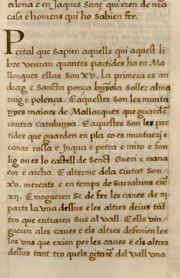 edona e en Jaques Sanç qui eren de nia
casa e homens qui ho sabien fer.
Pertal que sapien aquells qui aquest li
bre veuran quantes partides ha en Ma
llorques ellas son xv. La primera es an
draig e sancta ponça buyola soller alma
uig e polença. E aquestes son les munta
nyes maiors de Mallorcques que guarden
contra catalunya. E aquestes son les par
tides que guarden en pla co es muntuerj e
canar rossa e Jnqua e petra e miro e son
lig on es lo castell de Sent Gueri e mana
cor e arta. E alterme dela ciutat son
xv. mercats e en temps de sarraïns eren
xij. E mogueren se de fre les caues de mj
parts la una dellus e les altres deius tal
tro que entraren sus al vall. E ells vin
gueren ales caues e els altres defenien les
los uns que exien per les caues e els altres
dessus tant tro quels gitaren del vall una